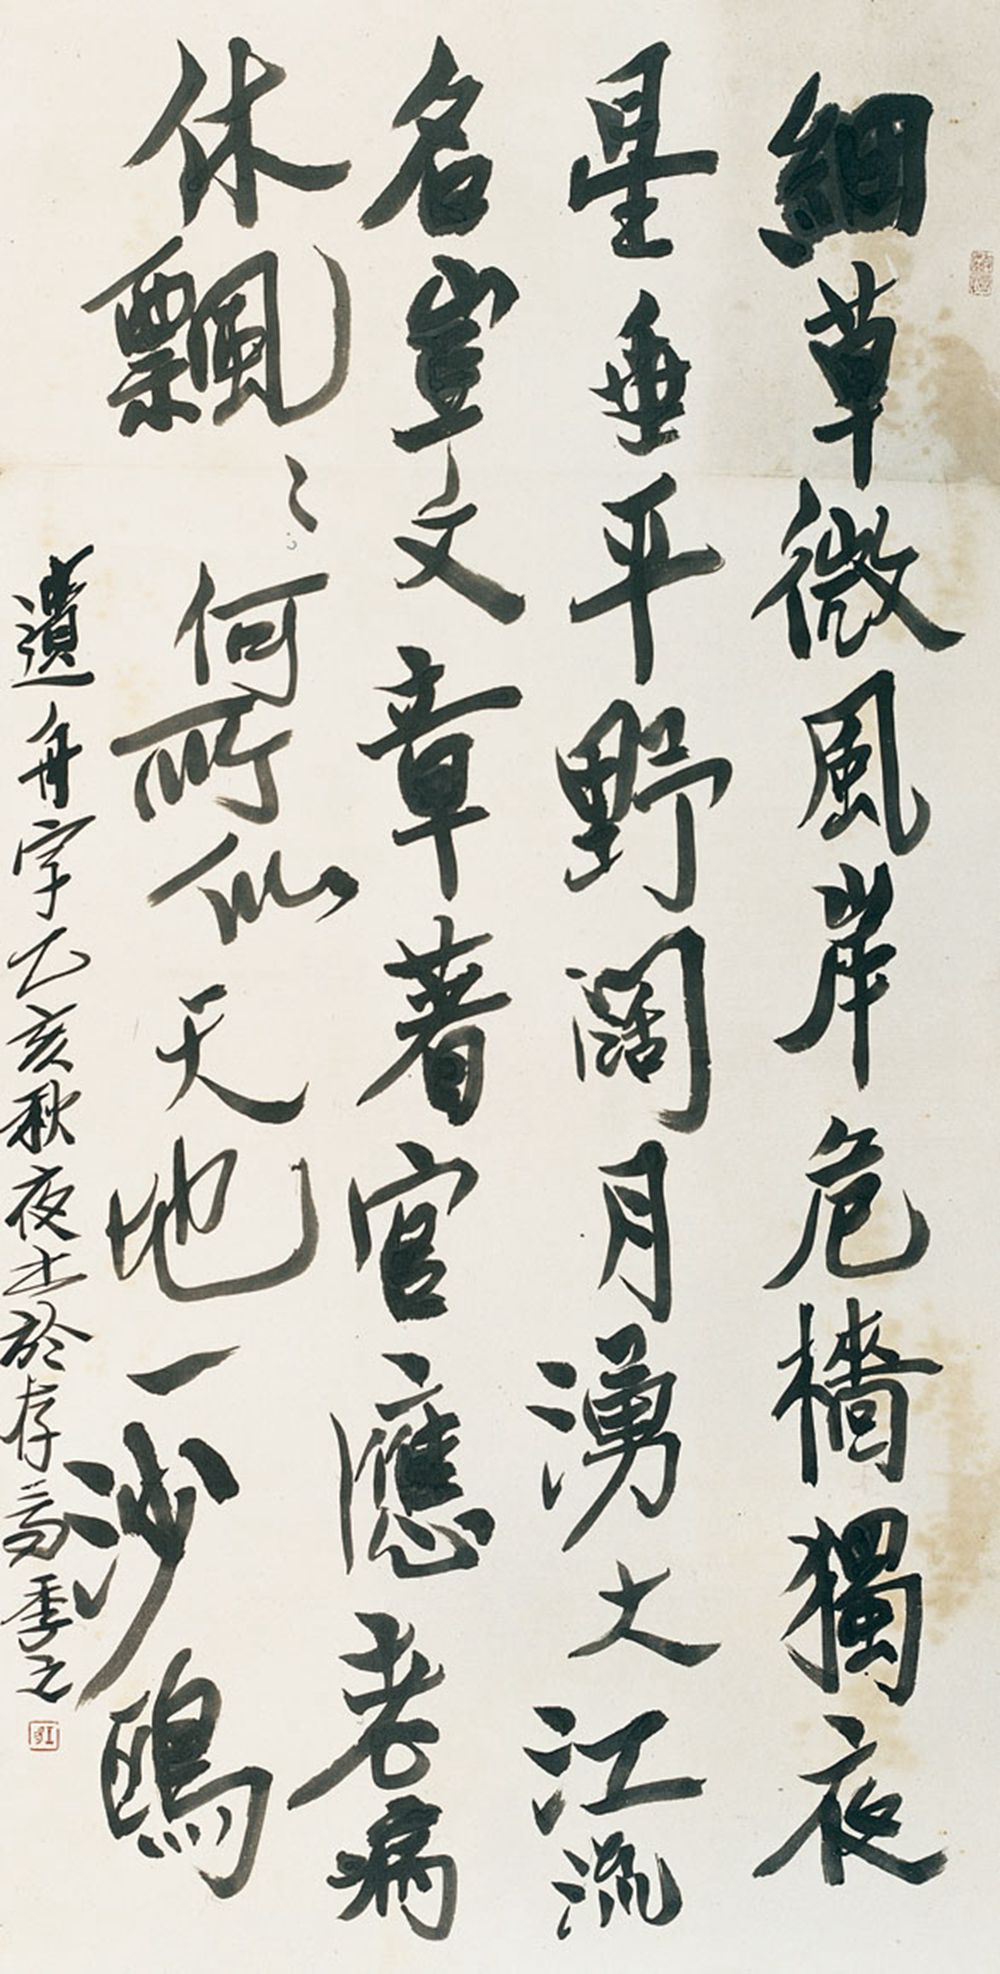 細草微風岸危檣獨夜
星垂平野闊月湧大江流
名豈文章著官應老病
休飄〻何所似天地一沙鷗
遺舟字乙亥秋夜書於存齋季之